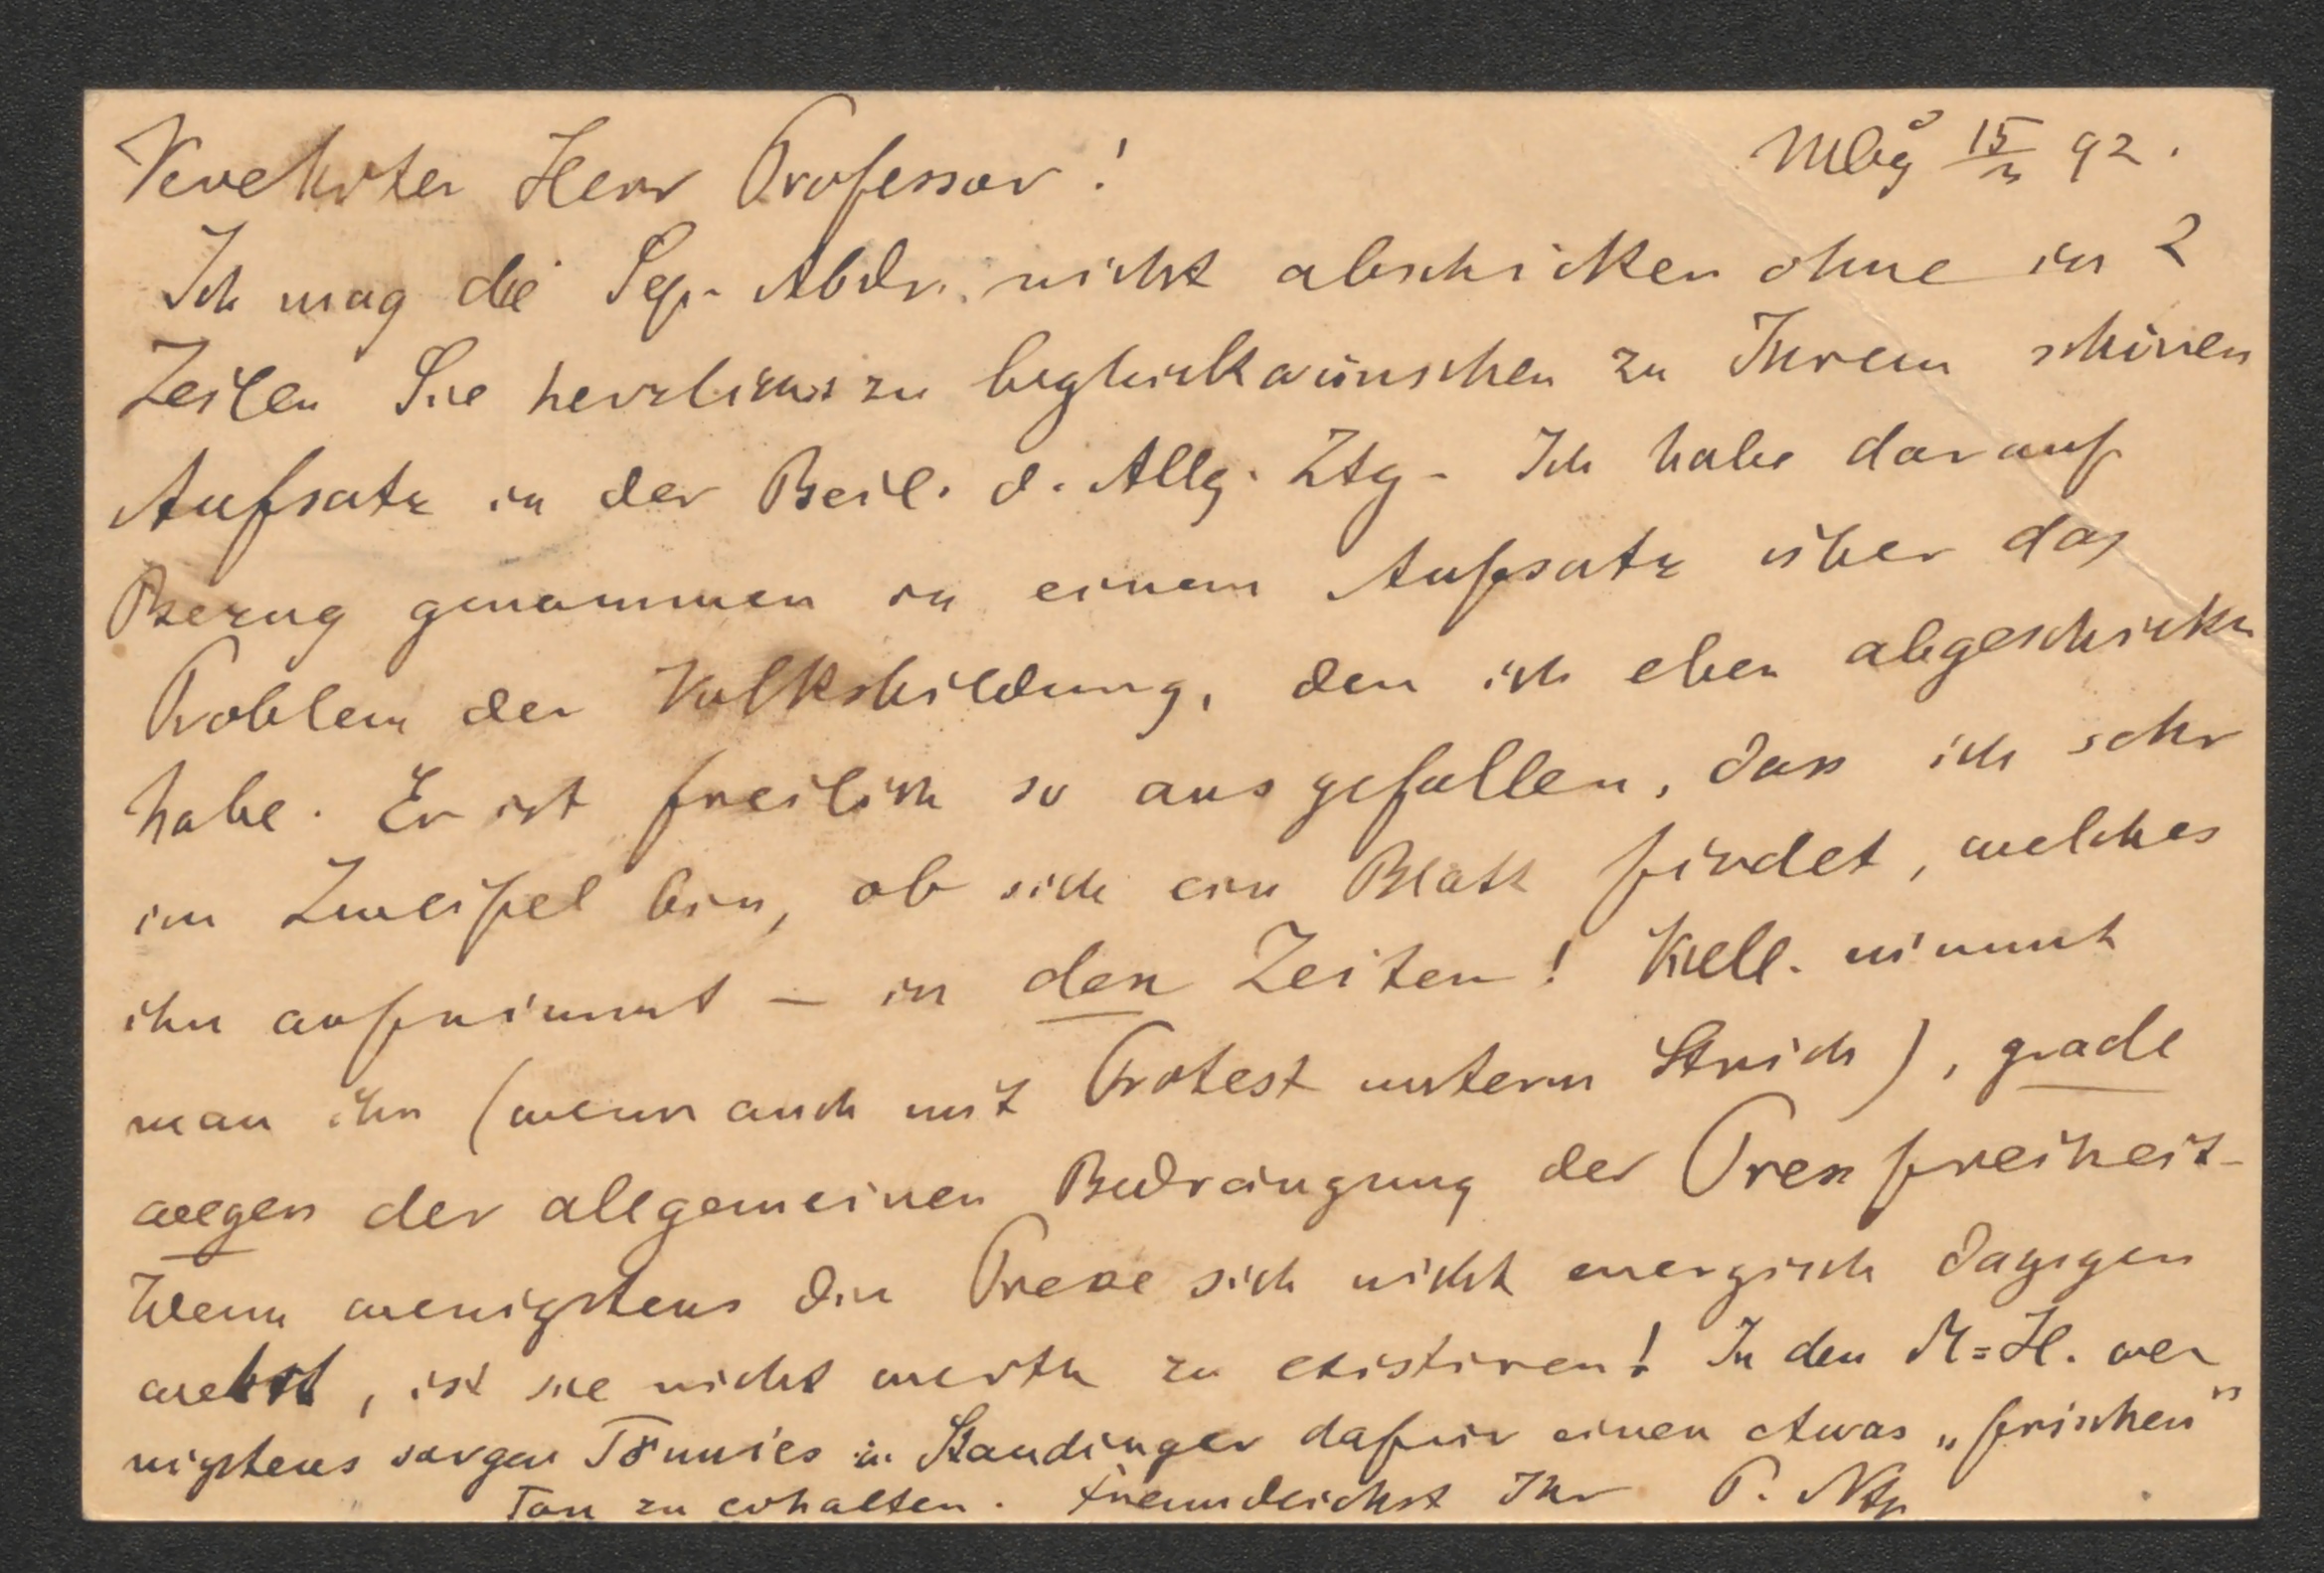 Verehrter Herr Professor! Mbg 15/3 92.
Ich mag die Sep.-Abdr. nicht abschicken ohne in 2
Zeilen Sie herzlichst zu beglückwünschen zu Ihrem schönen
Aufsatz in der Beil. d. Allg. Ztg. Ich habe darauf
Bezug genommen in einem Aufsatz über das
Problem der Volksbildung, den ich eben abgeschickt
habe. Er ist freilich so ausgefallen, dass ich sehr
im Zweifel bin, ob sich ein Blatt findet, welches
ihn aufnimmt – in den Zeiten! Viell. nimmt
man ihn (wenn auch mit Protest unterm Strich), grade
wegen der allgemeinen Bedrängung der Pressfreiheit.
Wenn wenigstens die Presse sich nicht energisch dagegen
wehrt, ist sie nicht werth zu existiren! In den M=H. we-
nigstens sorgen Tönnies u. Staudinger dafür einen etwas „frischen"
Ton zu erhalten. Freundlichst Ihr P. Ntp